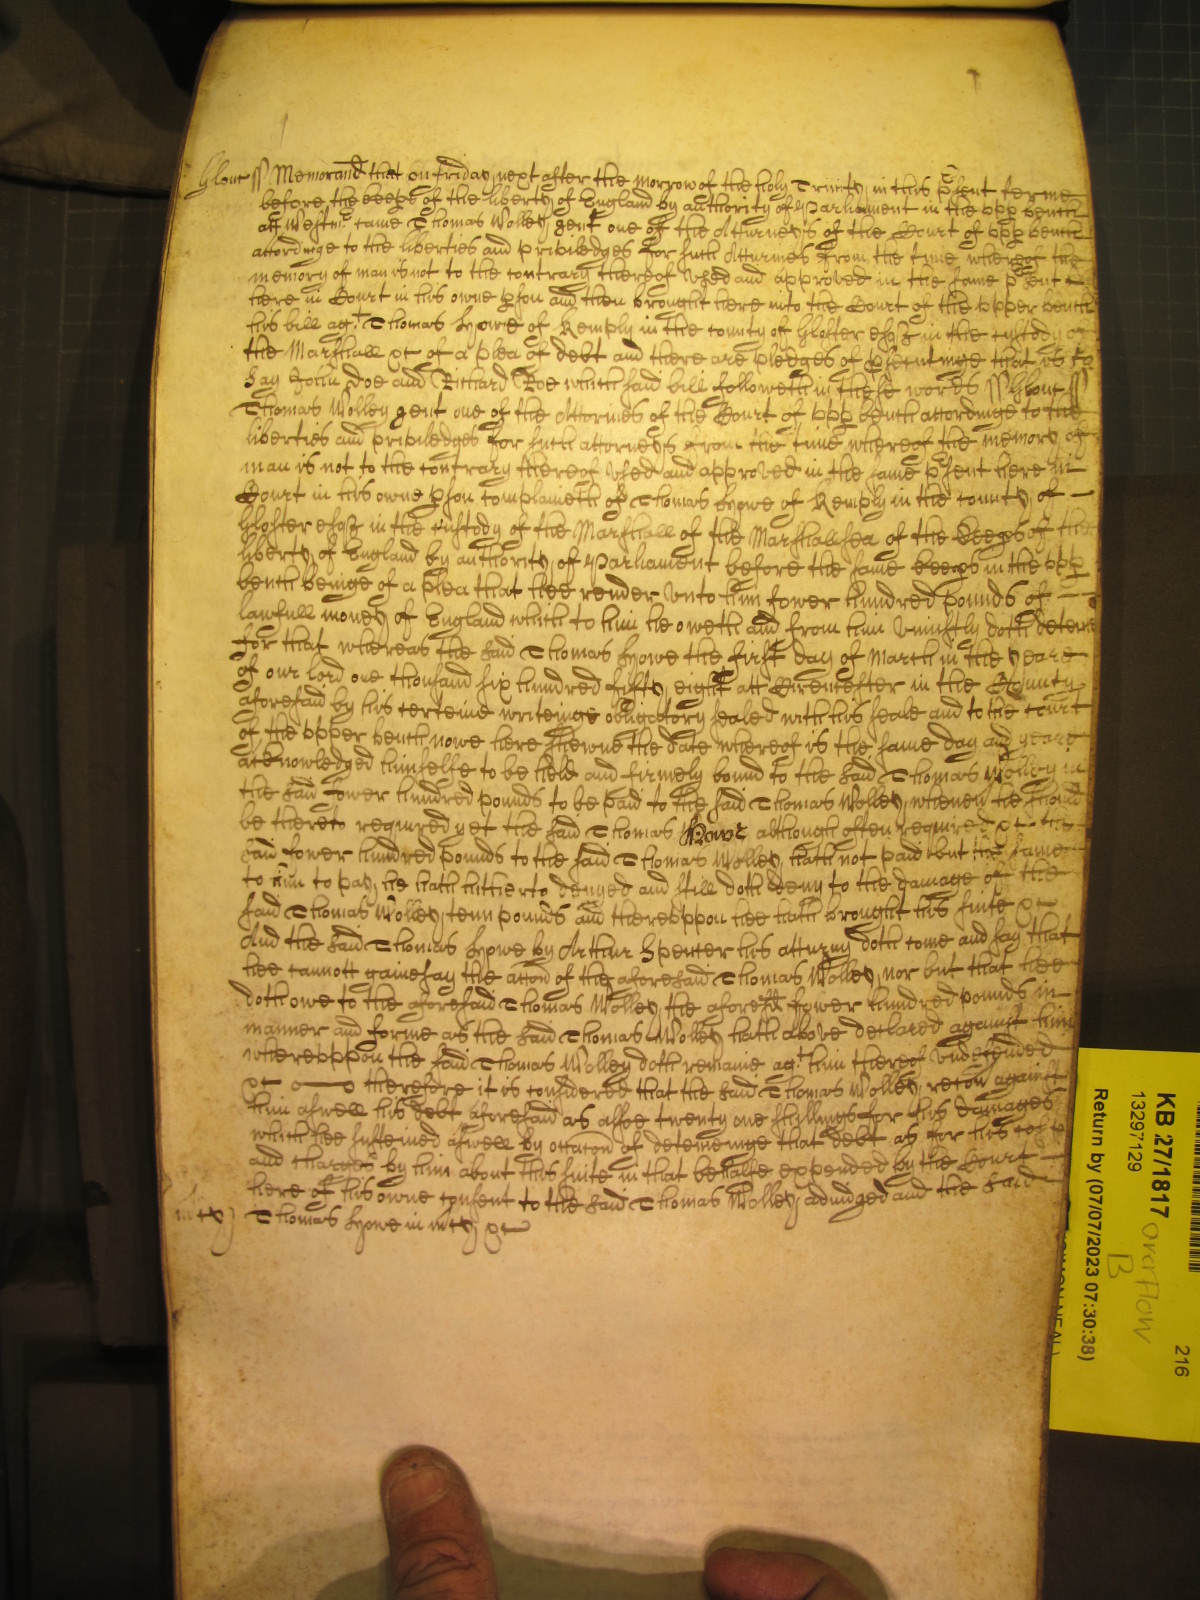 Glouc ss Memorand that on Friday next after the morrow of the holy Trinity in this psent terme
before the keeps of the liberty of England by authority of Parliament in the upp bench
att Westm came Thomas Wolley gent one of the Atturneys of the Court of upp bench
accordinge to the liberties and priviledges for such Atturnies from the time whereof the
memory of man is not to the contrary thereof used and approved in the same psent
here in Court in his owne pson and then brought here into the Court of the upper bench
his bill agt Thomas Howe of Kemply in the county of Gloster esqr in the custody of
the Marshall &c of a plea of debt and there are pledges of psentinge that is to
say John Doe and Richard Roe which said bill followeth in these words ss Glouc ss
Thomas Wolley gent one of the Attornies of the Court of upp bench accordinge to the
liberties and priviledges for such attorneys from the time whereof the memory of
man is not to the contrary thereof used and approved in the same psent here in
Court in his owne pson complaineth of Thomas Howe of Kemply in the county of
Gloster esqr in the custody of the Marshall of the Marshalsea of the keeps of the
liberty of England by authority of Parliament before the same keeps in the upp
bench beinge of a plea that hee render unto him fower hundred pounds of
lawfull money of England which to him he oweth and from him uniustly doth deteine
for that whereas the said Thomas Howe the first day of March in the yeare
of our lord one thousand six hundred fifty eight att Cirencester in the County
aforesaid by his certeine writeinge obligatory sealed with his seale and to the court
of the upper bench nowe here shewne the date whereof is the same day and yeare
acknowledged himselfe to be held and firmely bound to the said Thomas Wolley in
the said fower hundred pounds to be paid to the said Thomas Wolley when he should
be thereto required yet the said Thomas Howe although often required &c the
said fower hundred pounds to the said Thomas Wolley hath not paid but the same
to him to pay he hath hitherto denyed and still doth deny to the damage of the
said Thomas Wolley tenn pounds and thereuppon hee hath brought his suite &c
And the said Thomas Howe by Arthur Spencer his atturny doth come and say that
hee cannott gainesay the accon of the aforesaid Thomas Wolley nor but that hee
doth owe to the aforesaid Thomas Wolley the aforesd fower hundred pounds in
manner and forme as the said Thomas Wolley hath above declared against him
whereuppon the said Thomas Wolley doth remaine agt him thereof undefended
&c therefore it is considered that the said Thomas Wolley recov against
him aswell his debt aforesaid as alsoe twenty one shillings for his damages
which hee susteined aswell by occacon of deteininge that debt as for his costs
and charges by him about his suite in that behalfe expended by the Court
here of his owne consent to the said Thomas Wolley adiudged and the said
in mcy Thomas Howe in mcy &c
KB 27/1817
13297129
Return by (07/07/2023 07:30:38)
overflow
B
216